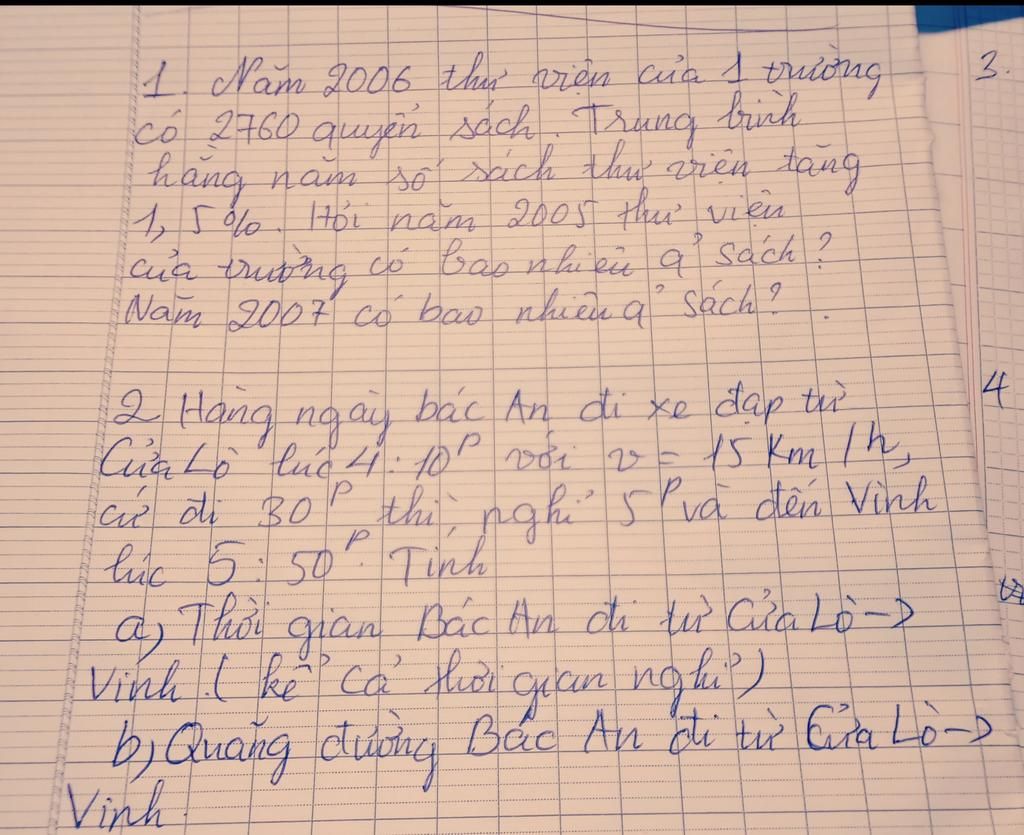 1. Năm 2006 thư viện của 1 trường
có 2760 quyển sách. Trung bình
hằng năm số sách thư viện tăng
1,5%. Hỏi năm 2005 thư viện
của trường có bao nhiêu q' sách?
Năm 2007 có bao nhiêu q' sách?
2 Hàng ngày bác An đi xe đạp từ
Cửa Lò lúc 4:10ᵖ với v = 15 km/h,
cứ đi 30ᵖ thì nghỉ 5ᵖ và đến Vinh
lúc 5:50ᵖ. Tính
a, Thời gian Bác An đi từ Cửa Lò ->
Vinh. (kể cả thời gian nghỉ)
b, Quãng đường Bác An đi từ Cửa Lò ->
Vinh.
3.
4